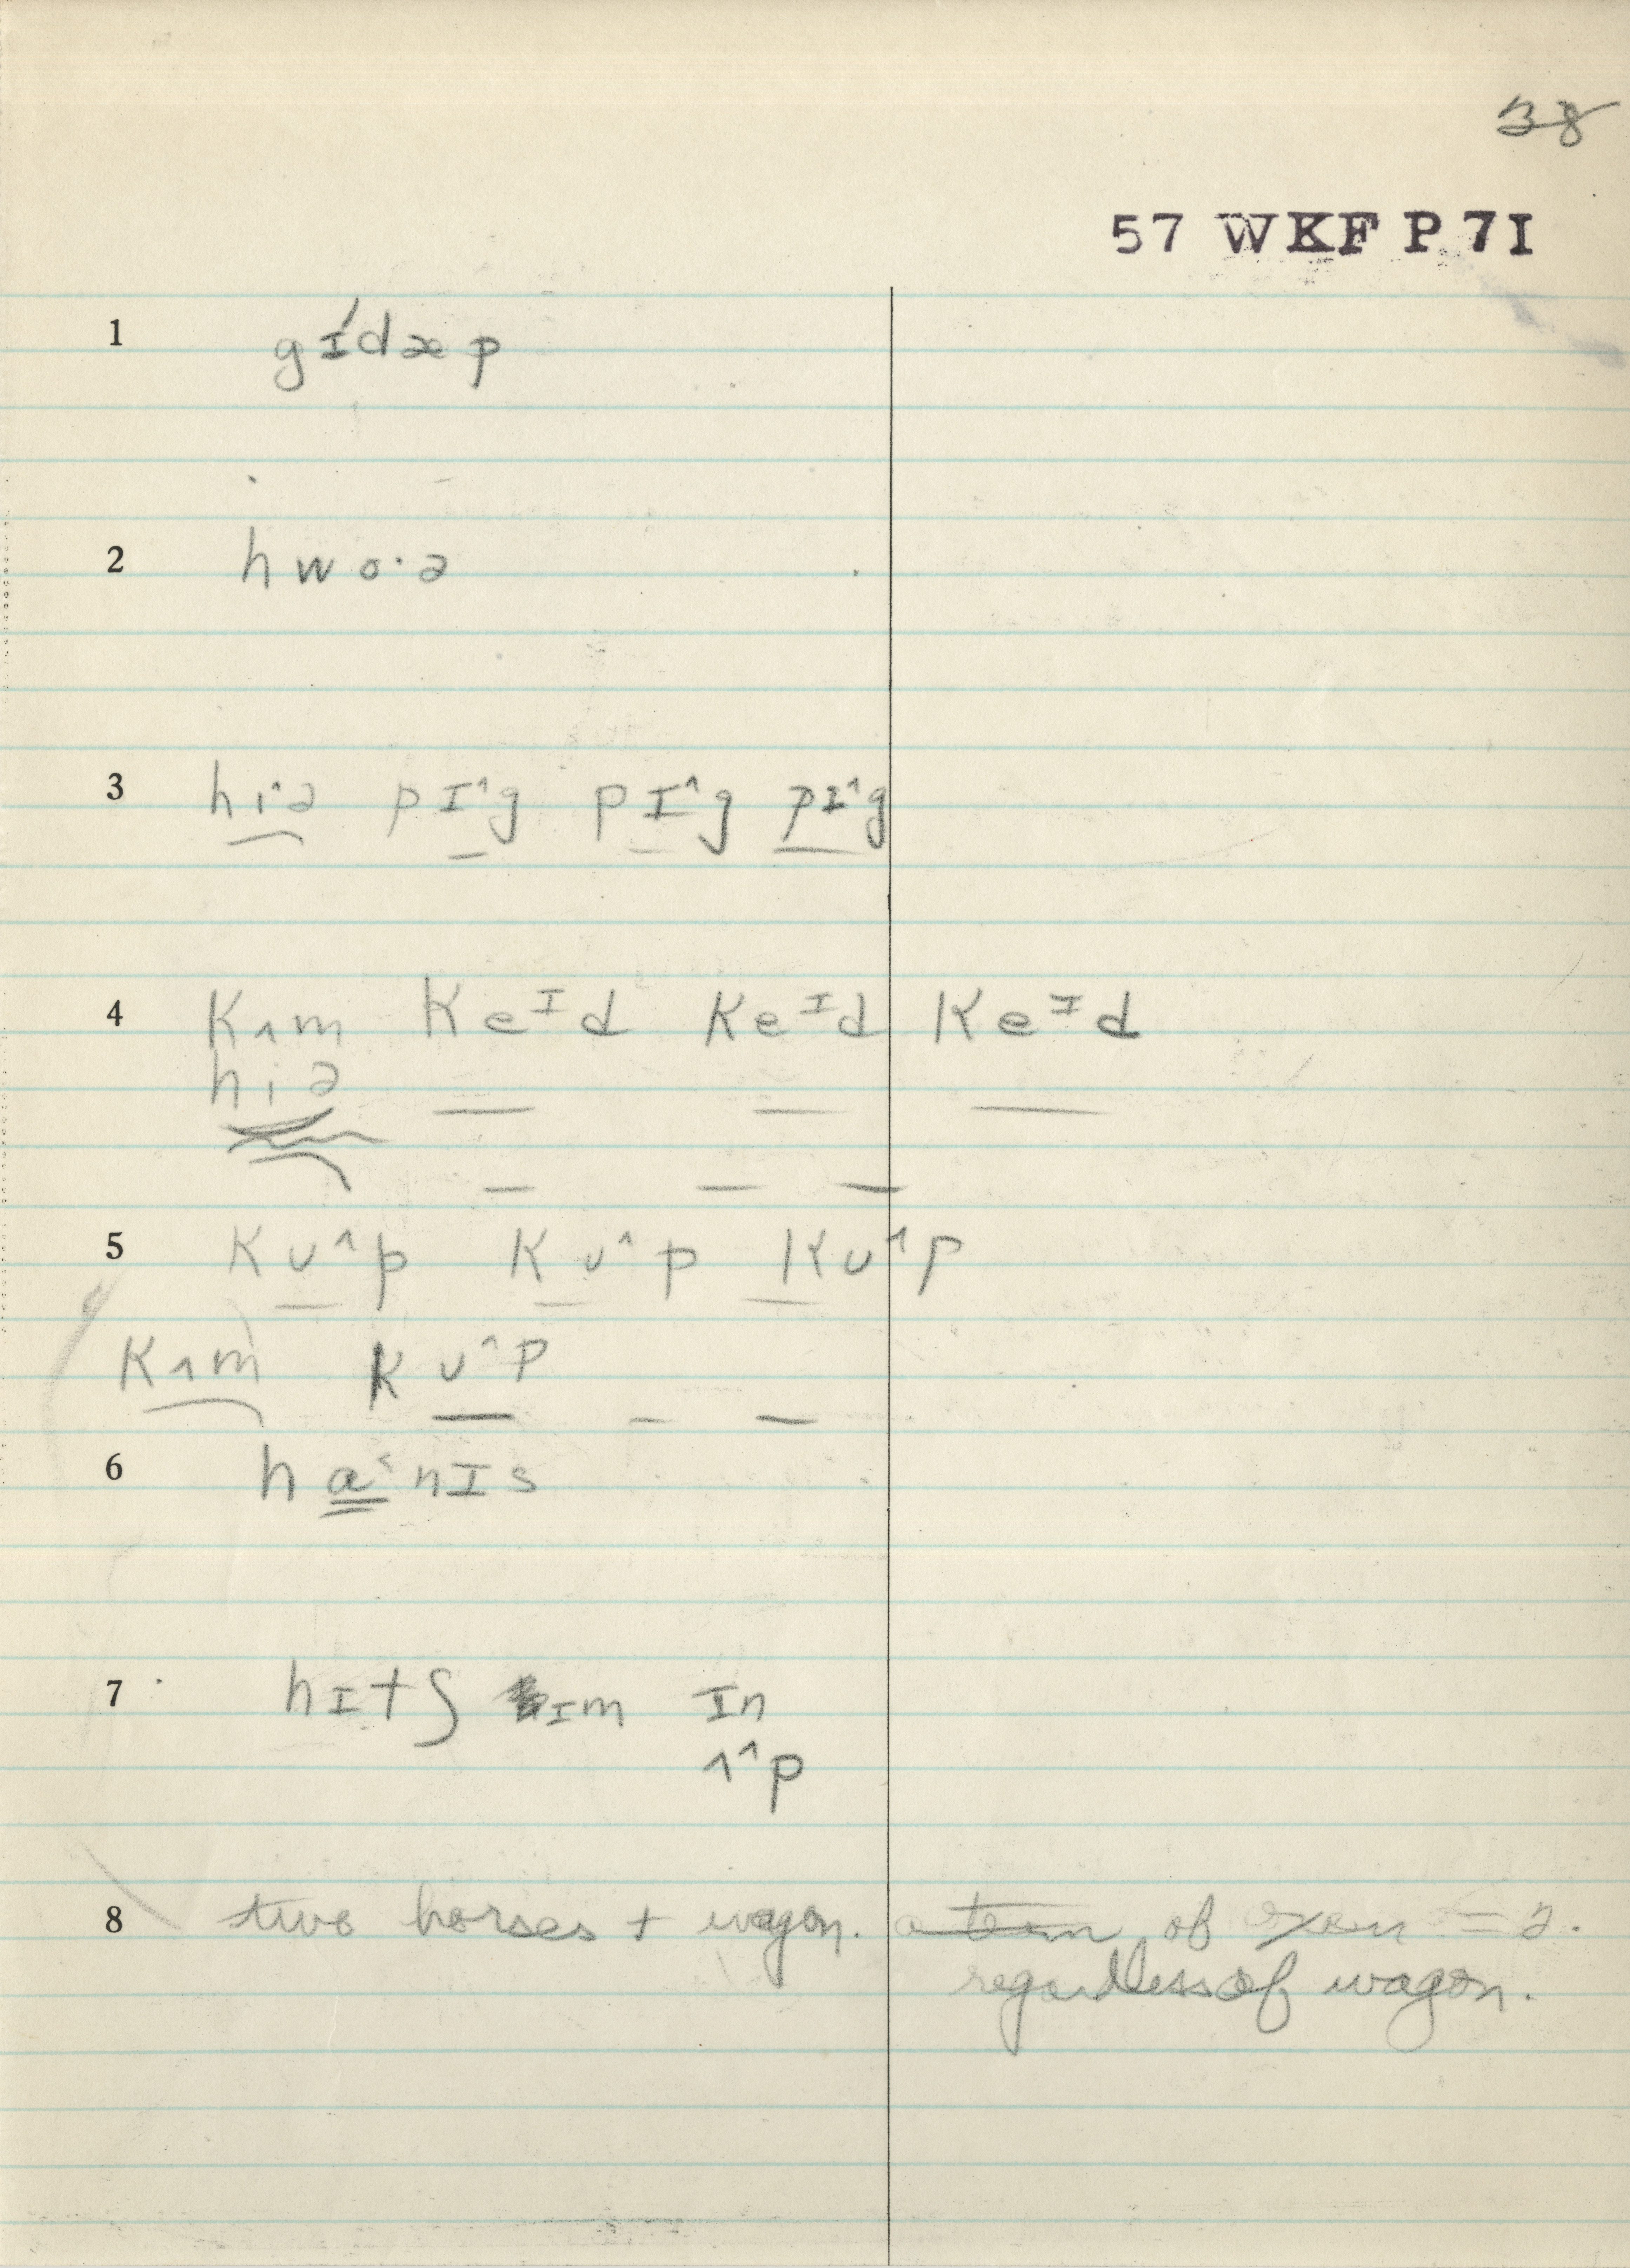 38
57 WKF P 7I
1 gɪ́dæp
2 hwo·ə
3 hi·ə pɪ^g pɪ^g pɪ^g
4 Kʌm Keᴵd Keᴵd Keᴵd
hiə
5 Kʊ^p Kʊ^p Kʊ^p
Kʌm Kʊ^p
6 ha˂nɪs
7 hɪtʃ ɪm ɪn
ʌ^p
8 two horses + wagon. a team of oxen = 2.
regardless of wagon.